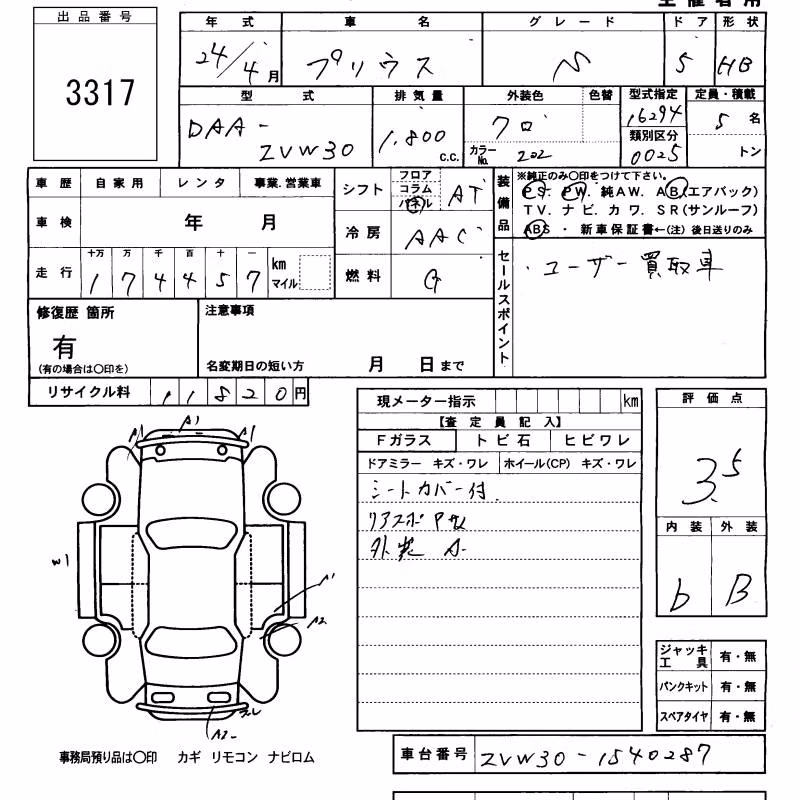 出品番号
3317
年式 車名 グレード ドア 形状
24/4月 プリウス S 5 HB
型式 排気量 外装色 色替 型式指定 定員・積載
DAA-ZVW30 1.800 c.c. クロ カラーNo. 202 16294 5名
類別区分 0025 トン
車歴 自家用 レンタ 事業.営業車
車検 年 月
走行 十万 万 千 百 十 一
174457 km マイル
シフト フロア コラム パネル AT
冷房 AAC
燃料 G
装備品 ※純正のみ〇印をつけて下さい。
PS. PW. 純AW. AB(エアバック)
TV. ナビ. カワ. SR(サンルーフ)
ABS ・ 新車保証書←(注) 後日送りのみ
セールスポイント
・ユーザー買取車
修復歴 箇所
有
(有の場合は〇印を)
注意事項
名変期日の短い方 月 日まで
リサイクル料 11820円
現メーター指示 km
【査定員記入】
Fガラス トビ石 ヒビワレ
ドアミラー キズ・ワレ ホイール(CP) キズ・ワレ
シートカバー付.
リアスポ
外装 A-
評価点
3.5
内装 外装
b B
A1
A1 A1
W1
A1
A2
ズレ
A2-
ジャッキ工具 有・無
パンクキット 有・無
スペアタイヤ 有・無
事務局預り品は〇印 カギ リモコン ナビロム
車台番号 ZVW30-1540287